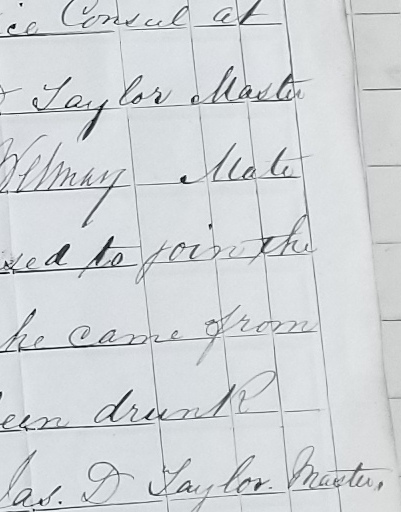 ice Consul at
Taylor Master
Mate
sed to join the
he came from
een drunk
Jas. D Taylor. Master.